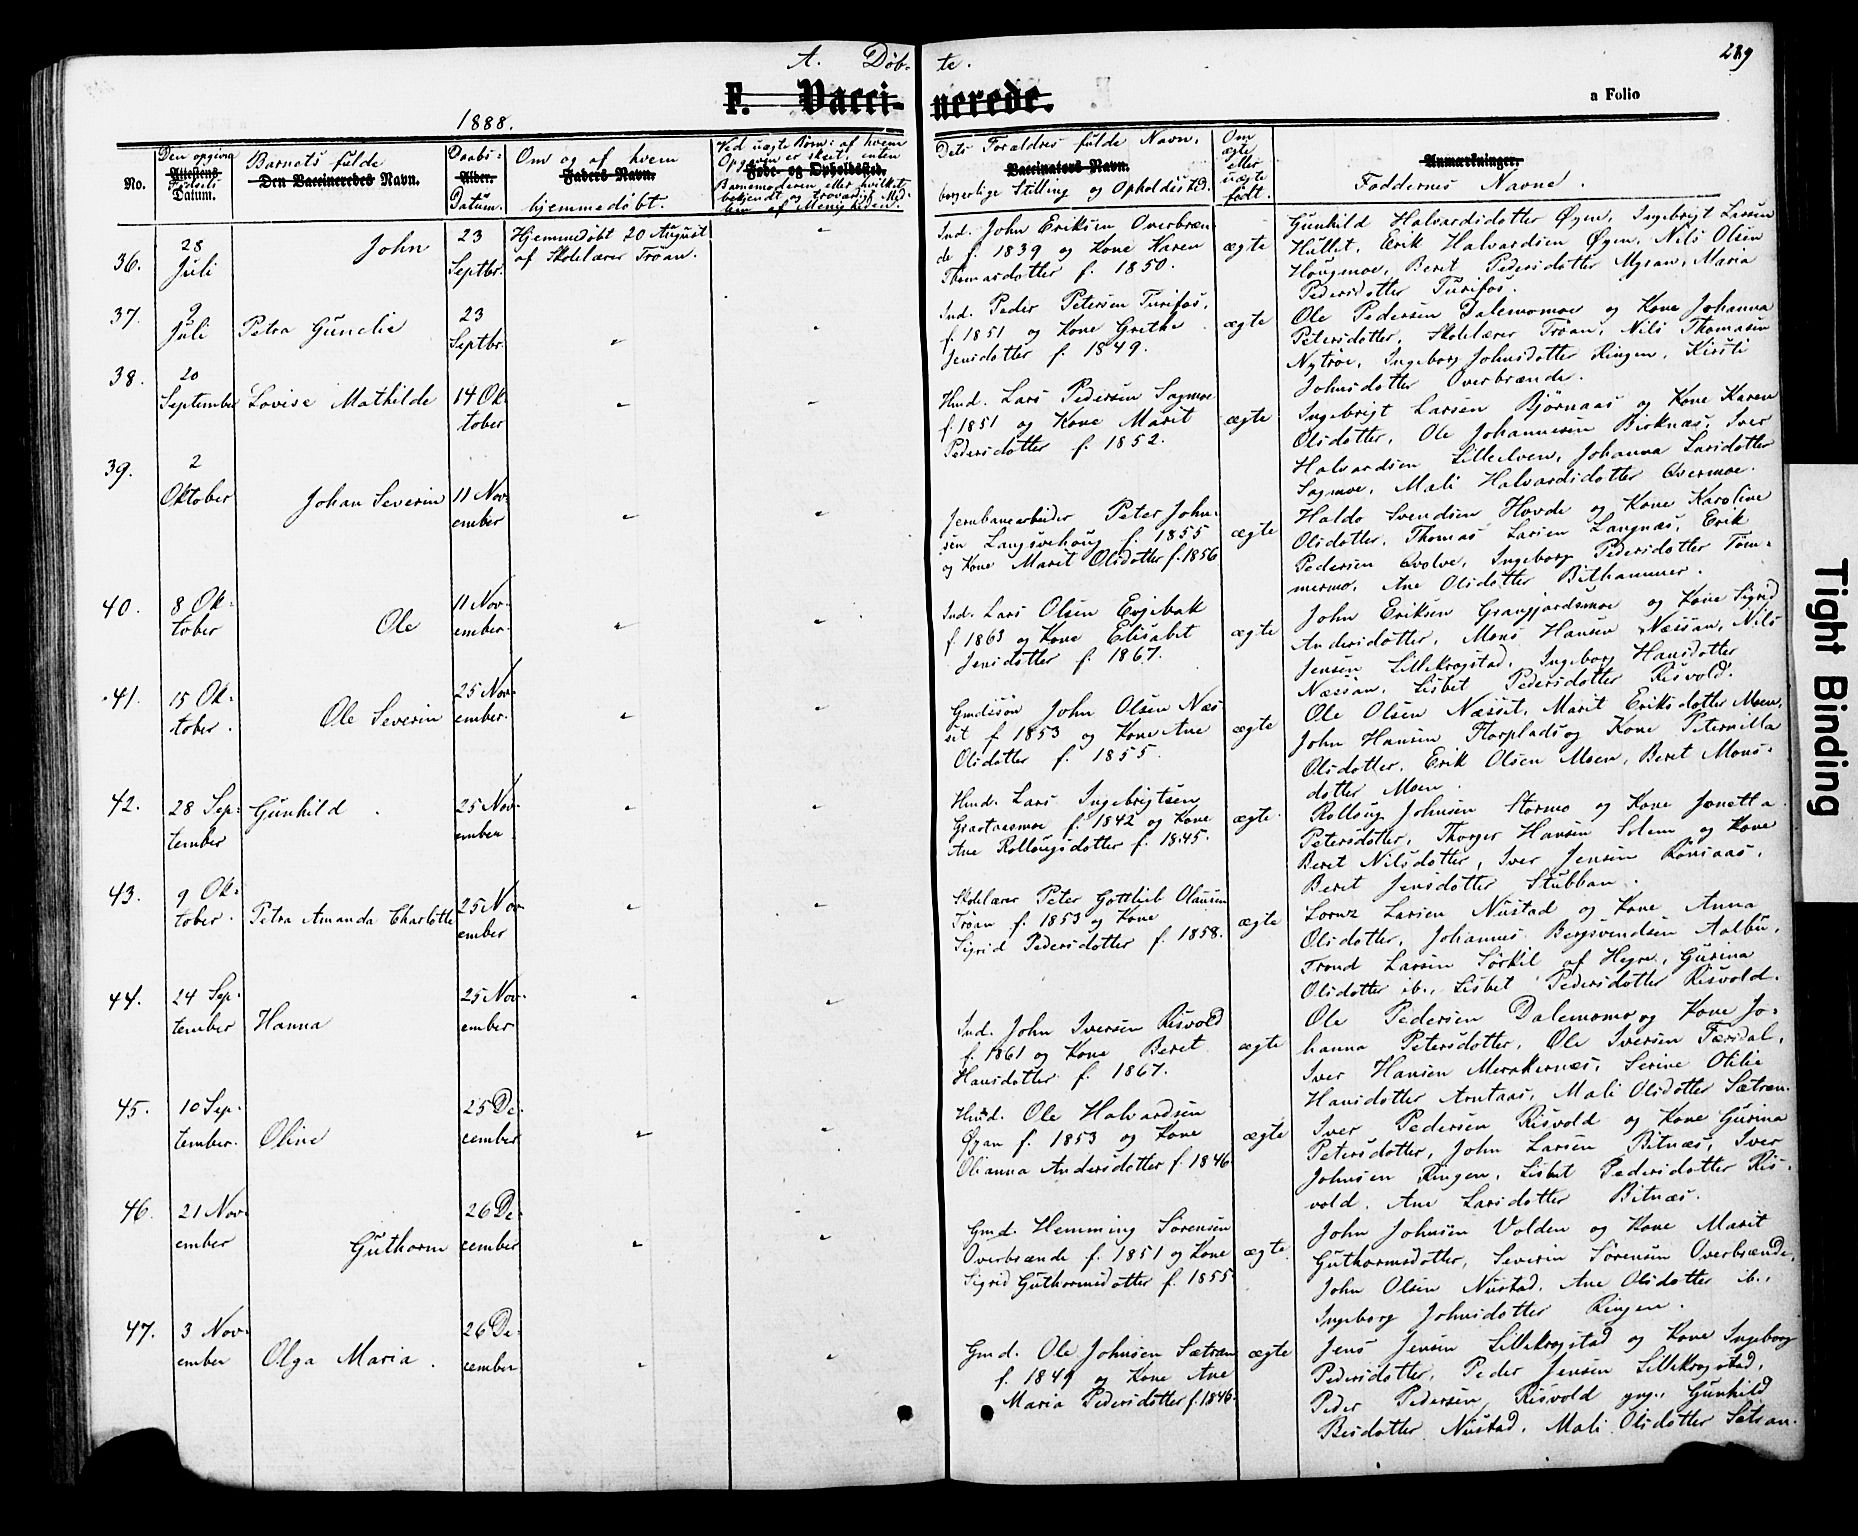 A. Døb- te.
289
F. Vacci- nerede.
a Folio
1888.
No.
Den opgivne
Attestens
Fødsels
Datum.
Barnets fulde
Den Vaccineredes Navn.
Daabs-
Alder.
Datum.
Om og af hvem
Faders Navn.
hjemmedøbt.
Ved uægte Børn: af hvem
Opgaven er skeet, enten
Føde- og Opholdssted.
Barnemoderen eller hvilket
bekjendt og troværdigt Med-
lem af Menigheden.
Dets Forældres fulde Navn,
Vaccinators Navn.
borgerlige Stilling og Opholdssted.
Om
ægte
eller
uægte
født.
Anmærkninger.
Faddernes Navne.
36.
28
Juli
John
23
Septbr.
Hjemmedøbt 20 August
af Skolelærer Trøan.
Ind. John Eriksen Overbræn-
de f. 1839 og Kone Karen
Thomasdatter f. 1850.
ægte
Gunhild Halvardsdotter Øyen, Ingebrigt Larsen
Hullet, Erik Halvardsen Øyen, Nils Olsen
Hougmoe, Beret Pedersdotter Myran, Maria
Pedersdotter Turifos.
37.
2
Juli
Petra Gunelie
23
Septbr.
Ind. Peder Petersen Turifos,
f. 1851 og Kone Grethe
Jensdotter f. 1849.
ægte
Ole Pedersen Dalemomoe og Kone Johanna
Petersdotter, Skolelærer Trøan, Nils Thomasen
Nytrøe, Ingeborg Johnsdotter Ringen, Kirsti
Johnsdotter Overbrænde.
38.
20
September
Lovise Mathilde
14 Ok-
tober
Hmd. Lars Pedersen Sagmoe
f. 1851 og Kone Marit
Pedersdotter f. 1852.
ægte
Ingebrigt Larsen Bjørnaas og Kone Karen
Olsdotter, Ole Johannesen Birknæs, Iver
Halvardsen Lilleelven, Johanna Larsdotter
Sagmoe, Mali Halvardsdotter Overmoe.
39.
2
Oktober
Johan Severin
11 Nov-
ember
Jernbanearbeider Peter John-
sen Langsvehoug f. 1855
og Kone Marit Olsdotter f. 1856
ægte
Haldo Svendsen Hovde og Kone Karoline
Olsdotter, Thomas Larsen Langnæs, Erik
Pedersen Qvolve, Ingeborg Pedersdotter Tøm-
mermo, Ane Olsdotter Bithammer.
40.
8 Ok-
tober
Ole
11 Nov-
ember.
Ind. Lars Olsen Evjebak
f. 1863 og Kone Elisabet
Jensdotter f. 1867.
ægte
John Eriksen Grangjordsmoe og Kone Sigrid
Andersdotter, Mons Hansen Næssan, Nils
Jensen Lillekrogstad, Ingeborg Hansdotter
Næssan, Lisbet Pedersdotter Risvold.
41.
15 Ok-
tober.
Ole Severin
25 Nov-
ember.
Gmdssøn John Olsen Næs-
set f. 1853 og Kone Ane
Olsdotter f. 1855.
ægte
Ole Olsen Næsset, Marit Eriksdotter Moen,
John Hansen Florplads og Kone Peternilla
Olsdotter, Erik Olsen Moen, Beret Mons-
dotter Moen.
42.
28 Sep-
tember
Gunhild
25 Nov-
ember
Hmd. Lars Ingebrigtsen
Græsvesmoe f. 1842 og Kone
Ane Rollougsdotter f. 1845.
ægte
Rolloug Johnsen Stormo og Kone Jonetta
Petersdotter, Thorger Hansen Solem og Kone
Beret Nilsdotter, Iver Jensen Rønsaas,
Beret Jensdotter Stubban.
43.
9 Ok-
tober.
Petra Amanda Charlotte
25 Nov-
ember
Skolelærer Peter Gottlieb Olausen
Trøan f. 1853 og Kone
Sigrid Pedersdotter f. 1858.
ægte
Lornz Larsen Nustad og Kone Anna
Olsdotter, Johannes Bergsvendsen Aalbu,
Trond Larsen Sørkil af Hegre, Gurina
Olsdotter ib., Lisbet Pedersdotter Risvold.
44.
24 Sep-
tember
Hanna
25 Nov-
ember
Ind. John Iversen Risvold
f. 1861 og Kone Beret
Hansdotter f. 1867.
ægte
Ole Pedersen Dalemomo og Kone Jo-
hanna Petersdotter, Ole Iversen Færsdal,
Iver Hansen Merakernæs, Serine Otilie
Hansdotter Arntaas, Mali Olsdotter Sætran.
45.
10 Sep-
tember.
Oline
25 De-
cember
Hmd. Ole Halvardsen
Øyan f. 1853 og Kone
Olianna Andersdotter f. 1846
ægte
Iver Pedersen Risvold og Kone Gurina
Petersdotter, John Larsen Bitnæs, Iver
Johnsen Ringen, Lisbet Pedersdotter Ris-
vold, Ane Larsdotter Bitnæs.
46.
21 Nov-
ember
Guthorm
26 De-
cember
Gmd. Hemming Sørensen
Overbrænde f. 1851 og Kone
Sigrid Guthormsdotter f. 1855.
ægte
John Johnsen Volden og Kone Marit
Guthormsdotter, Severin Sørensen Overbrænde,
John Olsen Nustad, Ane Olsdotter ib.,
Ingeborg Johnsdotter Ringen.
47.
3 Nov-
ember
Olga Maria.
26 De-
cember
Gmd. Ole Johnsen Sætran
f. 1849 og Kone Ane
Maria Pedersdotter f. 1846.
ægte
Jens Jensen Lillekrogstad og Kone Ingeborg
Pedersdotter, Peder Jensen Lillekrogstad,
Peder Pedersen Risvold yng., Gunhild
Besdotter Nustad, Mali Olsdotter Sætran.
Tight Binding